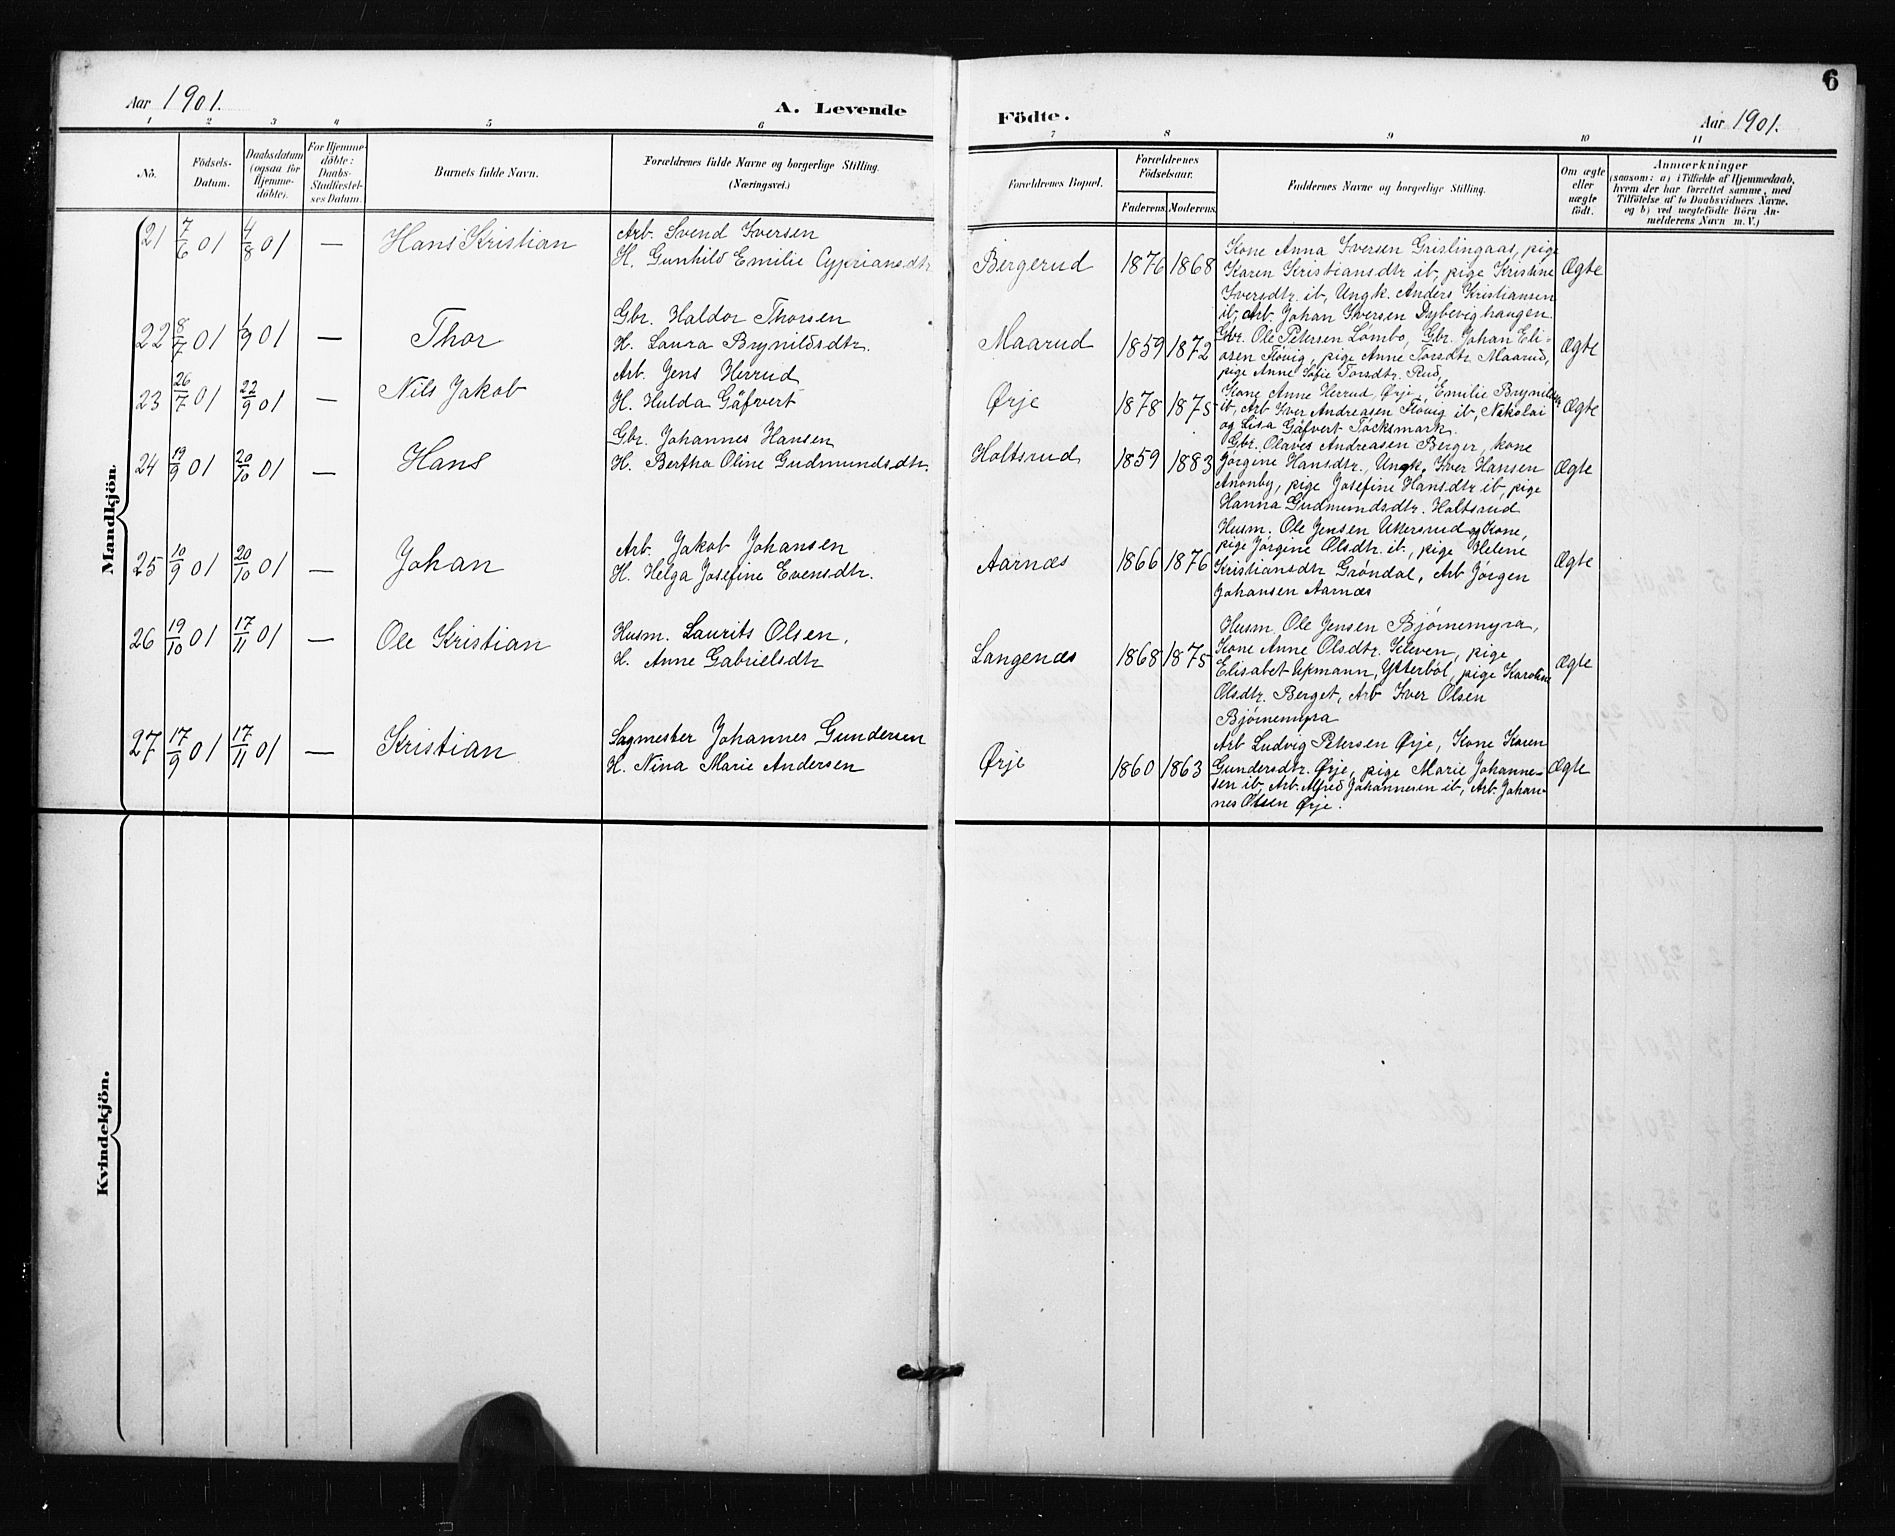 6
Aar 1901.
A. Levende
Födte.
Aar 1901.
1 2 3 4 5 6 7 8 9 10 11
No.
Födsels-
Datum.
Daabsdatum
(ogsaa for
Hjemme-
döbte).
For Hjemme-
döbte:
Daabs-
Stadfæstel-
ses Datum.
Barnets fulde Navn.
Forældrenes fulde Navne og borgerlige Stilling
(Næringsvei.)
Forældrenes Bopæl.
Forældrenes
Födselsaar.
Faderens. Moderens.
Faddernes Navne og borgerlige Stilling.
Om ægte
eller
uægte
födt.
Anmærkninger
(saasom: a) i Tilfælde af Hjemmedaab,
hvem der har forrettet samme, med
Tilföielse af to Daabsvidners Navne.
og b) ved uægtefödte Börn An-
melderens Navn m. V.)
Mandkjön
21 7/6 01 4/8 01 — Hans Kristian
Arb. Svend Iversen
H. Gunhild Emilie Cypriansdtr
Bergerud 1876 1868
Kone Anna Iversen Grislingaas, pige
Karen Kristiansdtr ib, pige Kristine
Iversdtr. ib, Ungk. Anders Kristiansen
ib, Arb. Johan Iversen Dybevighaugen.
Ægte
22 8/7 01 1/9 01 — Thor
Gbr. Haldor Thorsen
H. Laura Brynildsdtr.
Maarud 1859 1872
Gbr. Ole Petersen Lømbo, Gbr. Johan Eli-
asen Fløvig, pige Anne Torsdtr. Maarud,
pige Anne Sofie Torsdtr. Rud,
Ægte
23 26/7 01 22/9 01 — Nils Jakob
Arb. Jens Herrud
H. Hulda Gäfvert
Ørje 1878 1875
Kone Anne Herrud, Ørje, Emilie Brynildsen
ib, Arb Iver Andreasen Fløvig ib, Nikolai
og Lisa Gäfvert Töcksmark.
Ægte
24 19/9 01 20/10 01 — Hans
Gbr. Johannes Hansen
H. Bertha Oline Gudmundsdtr.
Holtsrud 1859 1883
Gbr. Olaves Andreasen Berger, kone
Jørgine Hansdtr., Ungk. Iver Hansen
Anonby, pige Josefine Hansdtr ib, pige
Hanna Gudmundsdtr. Holtsrud
Ægte
25 10/9 01 20/10 01 — Johan
Arb. Jakob Johansen
H. Helga Josefine Evensdtr.
Aarnæs 1866 1876
Husm. Ole Jensen og Kone,
pige Jørgine Olsdtr. ib., pige Helene
Kristiansdtr Grøndal, Arb Jörgen
Johansen Aarnæs
Ægte
26 19/10 01 17/11 01 — Ole Kristian
Husm. Laurits Olsen,
H. Anne Gabrielsdtr
Langenæs 1868 1875
Husm. Ole Jensen Bjørnemyra,
Kone Anne Olsdtr. Kleven, pige
Elisabet Ytterböl, pige Karoline
Olsdtr. Berget, Arb Iver Olsen
Bjørnemyra
Ægte
27 17/9 01 17/11 01 — Kristian
Sagmester Johannes Gundersen
H. Nina Marie Andersen
Ørje 1860 1863
Arb Ludvig Petersen Ørje, Kone Karen
Gundersdtr. Ørje, pige Marie Johanne-
sen ib, Arb. Alfred Johannesen ib, Arb. Johan-
nes Olsen Ørje.
Ægte
Kvindekjön.